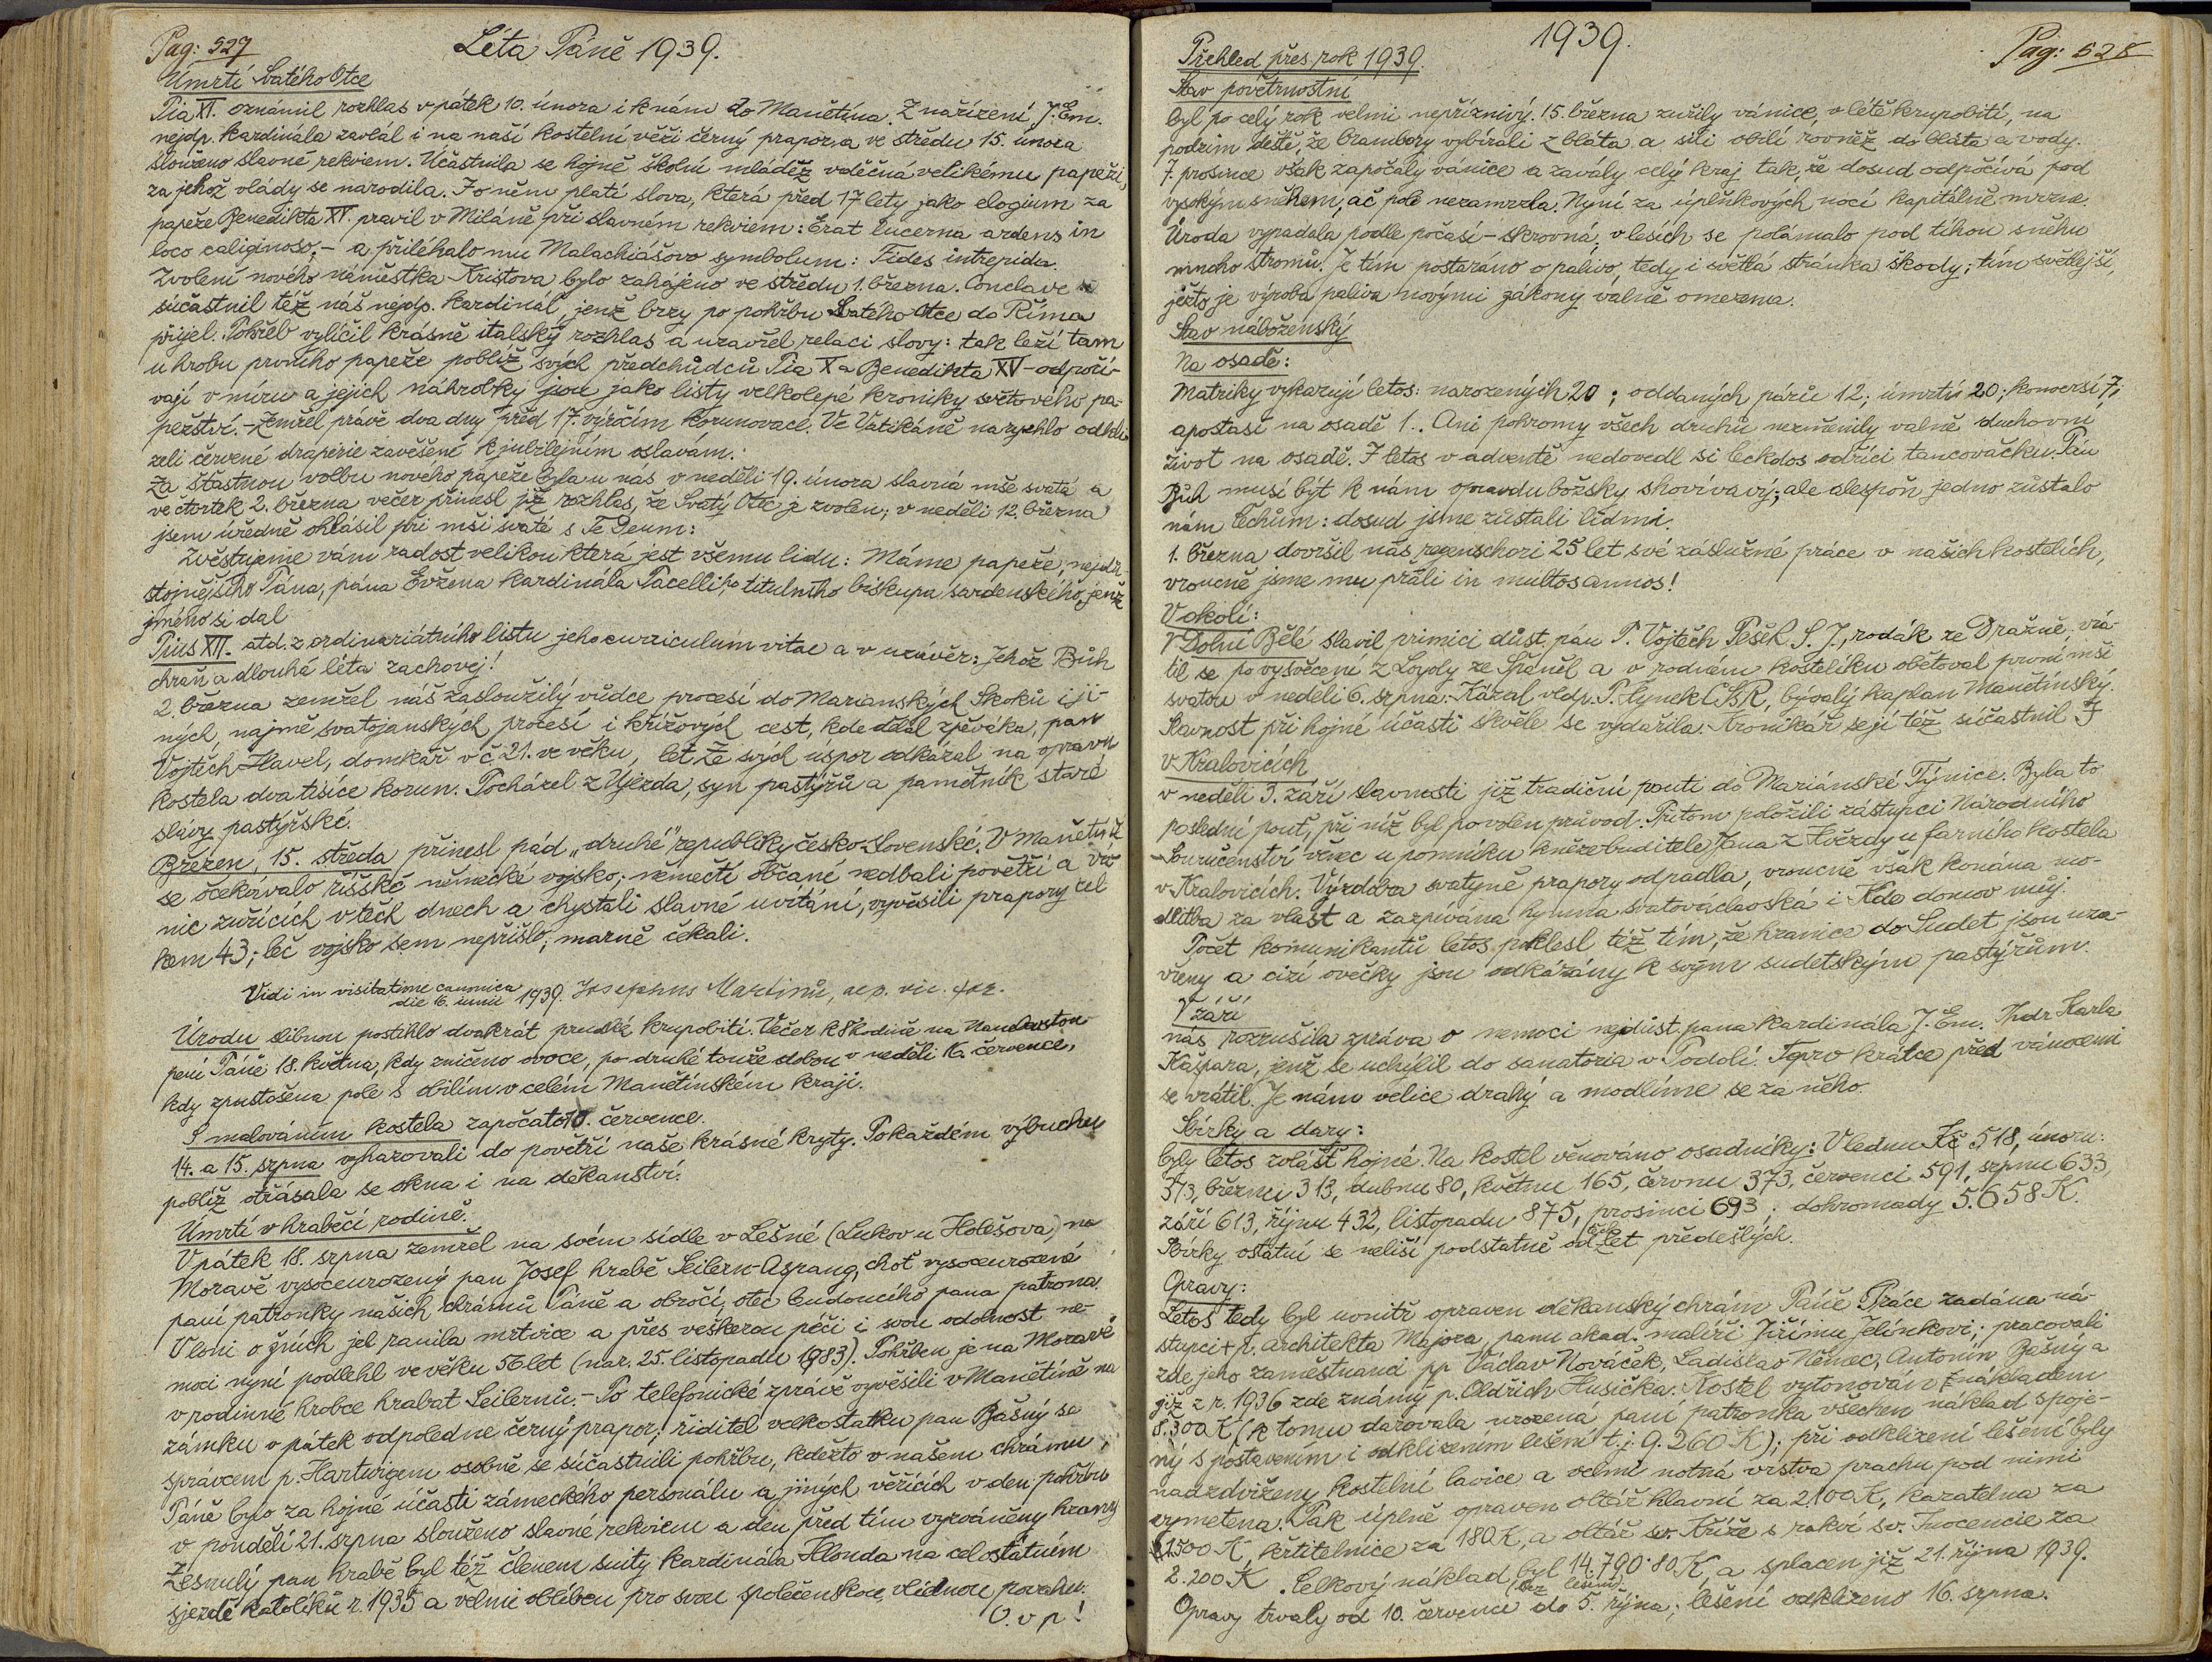 Pag: 527
Léta Páně 1939.
Úmrtí Svatého Otce
Pia XI. oznámil rozhlas v pátek 10. února i k nám do Manětína. Z nařízení J. Em.
nejdp. kardinála zavlál i na naší kostelní věži černý prapor, a ve středu 15. února
slouženo slavné rekviem. Účastnila se hojně školní mládež vděčná velikému papeži,
za jehož vlády se narodila. I o něm platí slova, která před 17 lety jako elogium za
papeže Benedikta XV. pravil v Miláně při slavném rekviem: Erat lucerna ardens in
loco caliginoso, – a přiléhalo mu Malachiášovo symbolum: Fides intrepida.
Zvolení nového náměstka Kristova bylo zahájeno ve středu 1. března. Conclave
súčastnil též náš nejdp. kardinál, jenž brzy po pohřbu Svatého Otce do Říma
přijel. Pohřeb vylíčil krásně italský rozhlas a uzavřel relaci slovy: tak leží tam
u hrobu prvního papeže poblíž svých předchůdců Pia X a Benedikta XV – odpočí-
vají v míru a jejich náhrobky jsou jako listy velkolepé kroniky světového pa-
pežství. – Zemřel právě dva dny před 17. výročím korunovace. Ve Vatikáně narychlo odkli
zeli červené draperie zavěšené k jubilejním oslavám.
Za šťastnou volbu nového papeže byla u nás v neděli 19. února slavná mše svatá a
ve čtvrtek 2. března večer přinesl již rozhlas, že Svatý Otec je zvolen; v neděli 12. března
jsem úředně ohlásil při mši svaté s Te Deum:
Zvěstujeme vám radost velikou která jest všemu lidu: Máme papeže, nejdů-
stojnějšího Pána, pána Evžena kardinála Pacelliho, titulního biskupa sardenského, jenž
jméno si dal
Pius XII. atd. z ordinariátního listu jeho curriculum vitae a v uzávěr: Jehož Bůh
chraň a dlouhá léta zachovej!
2. března zemřel náš zasloužilý vůdce procesí do Marianských Skoků i ji-
ných, najmě svatojanských procesí i křížových cest, kde dělal zpěváka, pan
Vojtěch Havel, domkář v č. 21. ve věku let. Ze svých úspor odkázal na opravu
kostela dva tisíce korun. Pocházel z Újezda, syn pastýřů a pamětník staré
slávy pastýřské.
Březen, 15. středa přinesl pád „druhé" republiky česko-Slovenské; V Manětíně
se očekávalo říšské německé vojsko; němečtí občané nedbali povětří a vá-
nic zuřících v těch dnech a chystali slavné uvítání, vyvěsili prapory cel
kem 43; leč vojsko sem nepřišlo, marně čekali.
Vidi in visitatione canonica
die 16. iunii 1939. Josephus Martinů, aep. vic. for.
Úrodu slibnou postihlo dvakrát prudké krupobití. Večer k škodě na Nanebevstou-
pení Páně 18. května, kdy zničeno ovoce, po druhé touže dobou v neděli 16. července,
kdy zpustošena pole s obilím v celém Manětínském kraji.
S malováním kostela započato 10. července.
14. a 15. srpna vyhazovali do povětří naše krásné kryty. Po každém výbuchu
poblíž otřásala se okna i na děkanství.
Úmrtí v hraběcí rodině.
V pátek 18. srpna zemřel na svém sídle v Lešné (Lukov u Holešova) na
Moravě vysoceurozený pan Josef hrabě Seilern-Aspang, choť vysoceurozené
paní patronky našich chrámů Páně a obročí, otec budoucího pana patrona.
Vloni o žních jej ranila mrtvice a přes veškerou péči i svou odolnost ne-
moci nyní podlehl ve věku 56 let (nar. 25. listopadu 1983). Pohřben je na Moravě
v rodinné hrobce hrabat Seilernů. – Po telefonické zprávě vyvěsili v Manětíně na
zámku v pátek odpoledne černý prapor, řiditel velkostatku pan Bašný se
správcem p. Hartwigem osobně se súčastnili pohřbu, kdežto v našem chrámu
Páně bylo za hojné účasti zámeckého personálu a jiných věřících v den pohřbu
v pondělí 21. srpna slouženo slavné rekviem a den před tím vyzváněny hrany.
Zesnulý pan hrabě byl též členem suity kardinála Hlonda na celostátním
sjezdě katolíků r. 1935 a velmi oblíben pro svou společenskou, vlídnou povahu.
O. v p!
1939.
Pag: 528
Přehled přes rok 1939.
Stav povětrnostní
byl po celý rok velmi nepříznivý. 15. března zuřily vánice, v létě krupobití, na
podzim deště, že brambory vybírali z bláta a sili obilí rovněž do bláta a vody.
7. prosince však započaly vánice a zavály celý kraj tak, že dosud odpočívá pod
vysokým sněhem, ač pole nezamrzla. Nyní za úplňkových nocí kapitálně mrzne.
Úroda vypadala podle počasí – skrovná; v lesích se polámalo pod tíhou sněhu
mnoho stromů. Je tím postaráno o palivo, tedy i světlá stránka škody; tím světlejší,
ježto je výroba paliva novými zákony valně omezena.
Stav náboženský
Na osadě:
Matriky vykazují letos: narozených 20; oddaných párů 12; úmrtí 20; konversí 7;
apostasí na osadě 1. Ani pohromy všech druhů nezměnily valně duchovní
život na osadě. I letos v adventě nedovedl si leckdos odříci tancovačku. Pán
Bůh musí být k nám opravdu božsky shovívavý; ale alespoň jedno zůstalo
nám Čechům: dosud jsme zůstali lidmi.
1. března dovršil náš regenschori 25 let své záslužné práce v našich kostelích,
vroucně jsme mu přáli in multos annos!
V okolí:
V Dolní Bělé slavil primici důst. pán P. Vojtěch Pešek S. J., rodák ze Dražně, vrá-
til se po vysvěcení z Loyoly ze Španěl a v rodném kostelíku obětoval první mši
svatou v neděli 6. srpna. Kázal vldp. P. Hynek CSsR, bývalý kaplan Manětínský.
Slavnost při hojné účasti skvěle se vydařila. Kronikář se jí též súčastnil I
v Kralovicích
v neděli 3. září slavnosti již tradiční pouti do Mariánské Týnice. Byla to
poslední pouť, při níž byl povolen průvod. Přitom položili zástupci Národního
Souručenství věnec u pomníku kněze buditele Jana z Hvězdy u farního kostela
v Kralovicích. Výzdoba svatyně prapory odpadla, vroucně však konána mo-
dlitba za vlast a zazpívána hymna svatováclavská i Kde domov můj.
Počet komunikantů letos poklesl též tím, že hranice do Sudet jsou uza-
vřeny a cizí ovečky jsou odkázány k svým sudetským pastýřům.
V září
nás rozrušila zpráva o nemoci nejdůst. pana kardinála J. Em. Thdr Karla
Kašpara, jenž se uchýlil do sanatoria v Podolí. Teprv krátce před vánocemi
se vrátil. Je nám velice drahý a modlíme se za něho.
Sbírky a dary:
byly letos zvlášť hojné. Na kostel věnováno osadníky: V lednu Kč 518, únoru:
573, březnu 313, dubnu 80, květnu 165, červnu 373, červenci 591, srpnu 633,
září 613, říjnu 432, listopadu 875, prosinci 693; dohromady 5.658 K.
Sbírky ostatní se neliší podstatně od let předešlých.
Opravy:
Letos tedy byl uvnitř opraven děkanský chrám Páně. Práce zadána ná-
stupci † p. architekta Majora, panu akad. malíři Jiřímu Jelínkovi; pracovali
zde jeho zaměstnanci pp Václav Nováček, Ladislav Němec, Antonín Bašný a
již z r. 1936 zde známý p. Oldřich Husička. Kostel vytonován nákladem
8.300 K (k tomu darovala urozená paní patronka všechen náklad spoje-
ný s postavením i odklizením lešení t. j. 9.260 K); při odklizení lešení byly
nadzdviženy kostelní lavice a velmi notná vrstva prachu pod nimi
vymetena. Pak úplně opraven oltář hlavní za 2.100 K, kazatelna za
1.500 K, křtitelnice za 180 K, a oltář sv. Kříže s rakví sv. Inocencie za
2.200 K. Celkový náklad (bez lešení) byl 14.790·80 K, a splacen již 21. října 1939.
Opravy trvaly od 10. července do 5. října; lešení odklizeno 16. srpna.